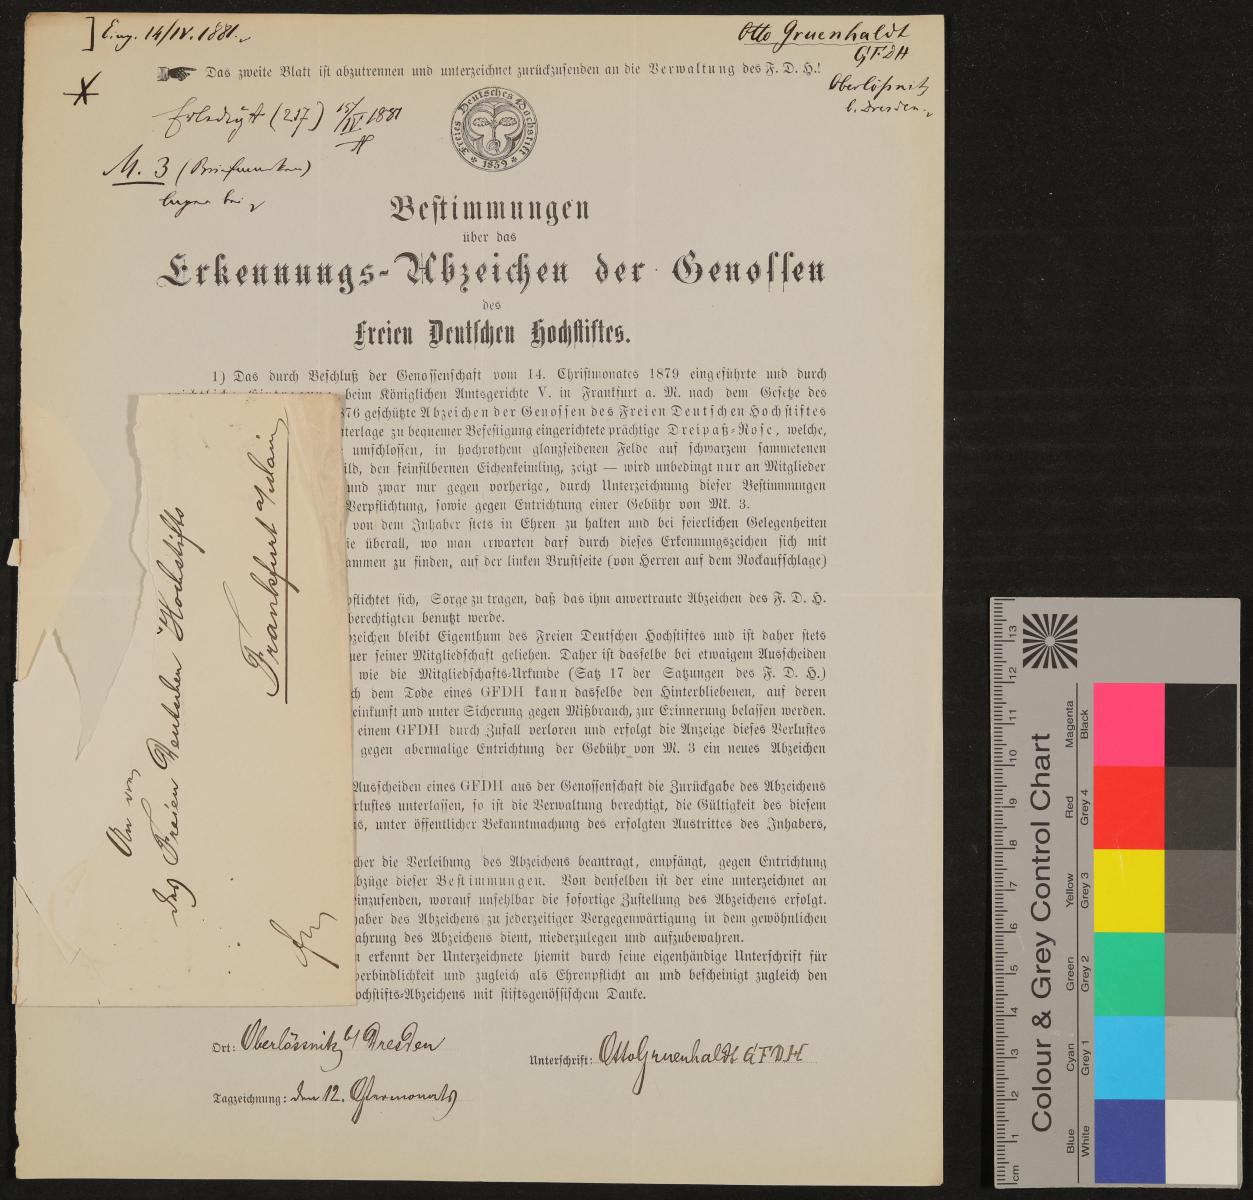 Eing. 14/IV. 1881.
Otto Gruenhaldt
GFDH
Oberlößnitz
b. Dresden.
Das zweite Blatt ist abzutrennen und unterzeichnet zurückzusenden an die Verwaltung des F. D. H.!
Erledigt (217) 15/IV 1881
M. 3 (Briefmarken)
lagen bei
Freies Deutsches Hochstift
1859
Bestimmungen
über das
Erkennungs-Abzeichen der Genossen
des
Freien Deutschen Hochstiftes.
1) Das durch Beschluß der Genossenschaft vom 14. Christmonates 1879 eingeführte und durch
beim Königlichen Amtsgerichte V. in Frankfurt a. M. nach dem Gesetze des
876 geschützte Abzeichen der Genossen des Freien Deutschen Hochstiftes
terlage zu bequemer Befestigung eingerichtete prächtige Dreipaß-Rose, welche,
umschlossen, in hochrothem glanzseidenen Felde auf schwarzem sammetenen
ild, den feinsilbernen Eichenkeimling, zeigt — wird unbedingt nur an Mitglieder
und zwar nur gegen vorherige, durch Unterzeichnung dieser Bestimmungen
Verpflichtung, sowie gegen Entrichtung einer Gebühr von Mk. 3.
von dem Inhaber stets in Ehren zu halten und bei feierlichen Gelegenheiten
ie überall, wo man erwarten darf durch dieses Erkennungszeichen sich mit
ammen zu finden, auf der linken Brustseite (von Herren auf dem Rockaufschlage)
pflichtet sich, Sorge zu tragen, daß das ihm anvertraute Abzeichen des F. D. H.
berechtigten benutzt werde.
bzeichen bleibt Eigenthum des Freien Deutschen Hochstiftes und ist daher stets
uer seiner Mitgliedschaft geliehen. Daher ist dasselbe bei etwaigem Ausscheiden
wie die Mitgliedschafts-Urkunde (Satz 17 der Satzungen des F. D. H.)
ch dem Tode eines GFDH kann dasselbe den Hinterbliebenen, auf deren
einkunft und unter Sicherung gegen Mißbrauch, zur Erinnerung belassen werden.
einem GFDH durch Zufall verloren und erfolgt die Anzeige dieses Verlustes
gegen abermalige Entrichtung der Gebühr von M. 3 ein neues Abzeichen
Ausscheiden eines GFDH aus der Genossenschaft die Zurückgabe des Abzeichens
rlustes unterlassen, so ist die Verwaltung berechtigt, die Gültigkeit des diesem
s, unter öffentlicher Bekanntmachung des erfolgten Austrittes des Inhabers,
cher die Verleihung des Abzeichens beantragt, empfängt, gegen Entrichtung
bzüge dieser Bestimmungen. Von denselben ist der eine unterzeichnet an
einzusenden, worauf unfehlbar die sofortige Zustellung des Abzeichens erfolgt.
haber des Abzeichens zu jederzeitiger Vergegenwärtigung in dem gewöhnlichen
ahrung des Abzeichens dient, niederzulegen und aufzubewahren.
n erkennt der Unterzeichnete hiemit durch seine eigenhändige Unterschrift für
verbindlichkeit und zugleich als Ehrenpflicht an und bescheinigt zugleich den
ochstifts-Abzeichens mit stiftsgenössischem Danke.
Ort: Oberlössnitz b/ Dresden
Unterschrift: Otto Gruenhaldt GFDH
Tagzeichnung: den 12. Ostermonats
An
des Freien Deutschen Hochstifts
Frankfurt a/Main
Colour & Grey Control Chart
Blue Cyan Green Yellow Red Magenta
White Grey 1 Grey 2 Grey 3 Grey 4 Black
cm 1 2 3 4 5 6 7 8 9 10 11 12 13